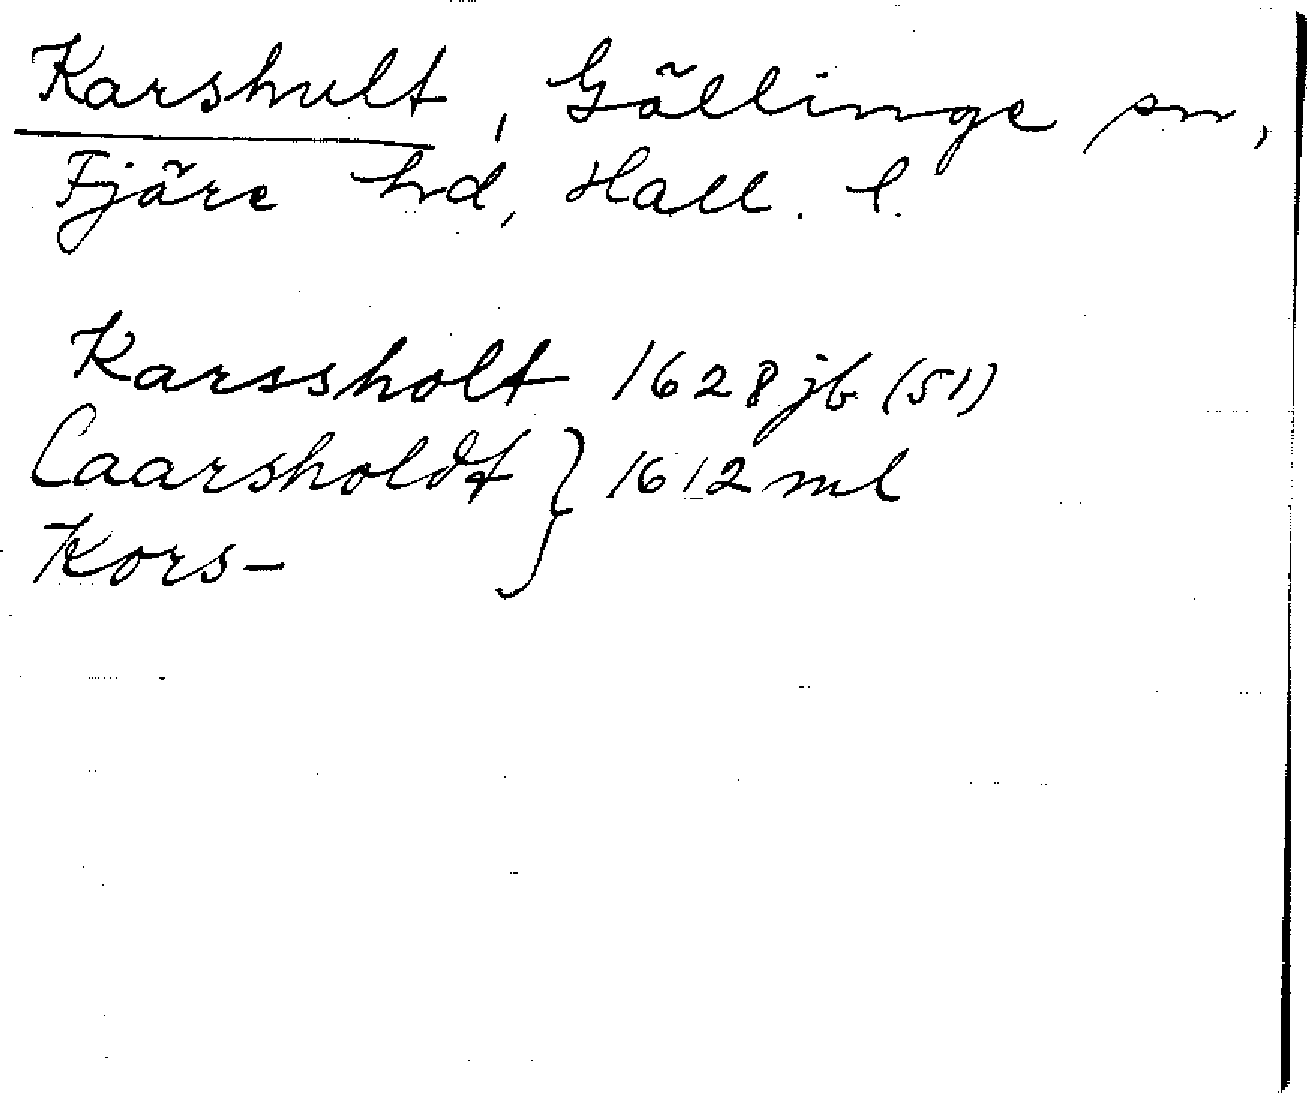 Karshult, Gällinge sn,
Fjäre hd, Hall. l.
Karssholt 1628 jb (51)
Caarsholdt } 1612 ml
Kors-